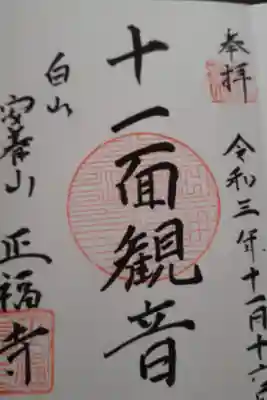 奉拝
令和三年十一月十六日
十一面観音
白山
正福寺